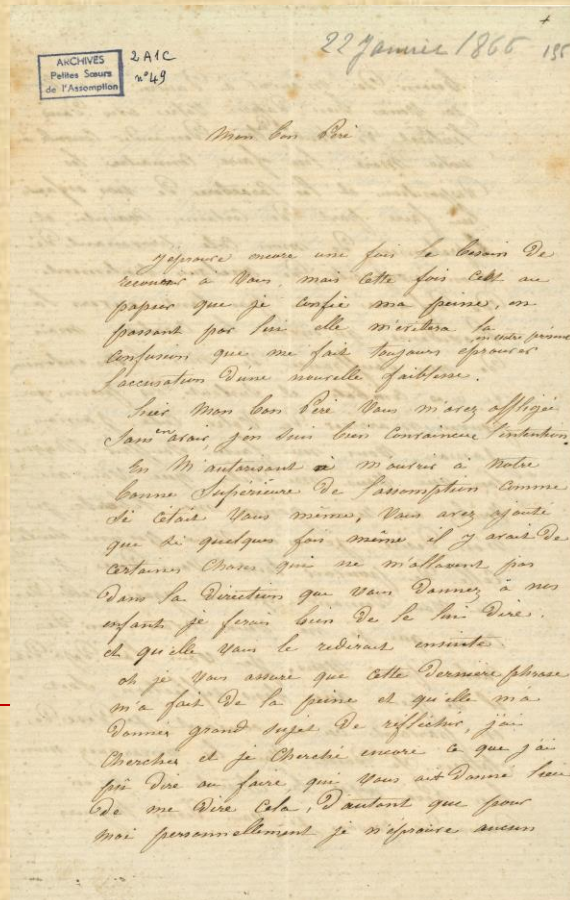 22 Janvier 1866 195
ARCHIVES
Petites Sœurs
de l'Assomption
2 A1C
n° 49
Mon bon Père
J'eprouve encore une fois le besoin de
recourrir a Vous, mais cette fois c'est au
papier que je confie ma peine, en
passant par lui elle m'evitera la
confusion que me fait toujours eprouver
en votre présence
l'accusation d'une nouvelle faiblesse.
hier Mon bon Père Vous m'avez affligée
Sans en avoir, j'en suis bien convaincue l'intention.
En M'autorisant à m'ouvrir à notre
bonne Supérieure de l'assomption comme
Si c'était Vous même, Vous avez ajouté
que si quelques fois même il y avait de
certaines choses qui ne m'allassent pas
dans la direction que vous donnez à nos
enfants je ferais bien de le lui dire.
et qu'elle vous le redirait ensuite
et je Vous assure que cette dernière phrase
m'a fait de la peine et qu'elle m'a
donner grand sujet de refflichir, j'ai
cherchée et je cherche encore ce que j'ai
pû dire ou faire qui Vous ait donné lieu
de me dire cela, d'autant que pour
moi personnellement je n'éprouve aucun